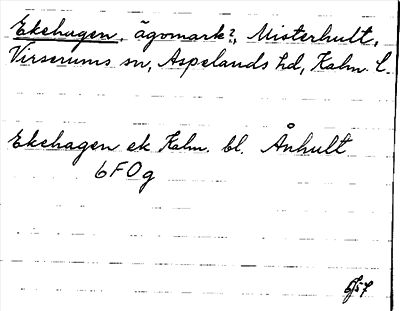 Ekehagen, ägomark?, Misterhult,
Virserums sn, Aspelands hd, Kalm. l.
Ekehagen ek Kalm. bl. Ånhult
6 F O g